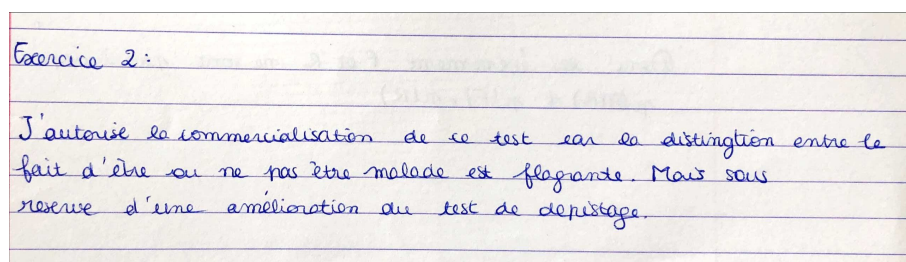 Exercice 2:
J'autorise la commercialisation de ce test car la distingtion entre le
fait d'être ou ne pas être malade est flagrante. Mais sous
reserve d'une amélioration du test de depistage.